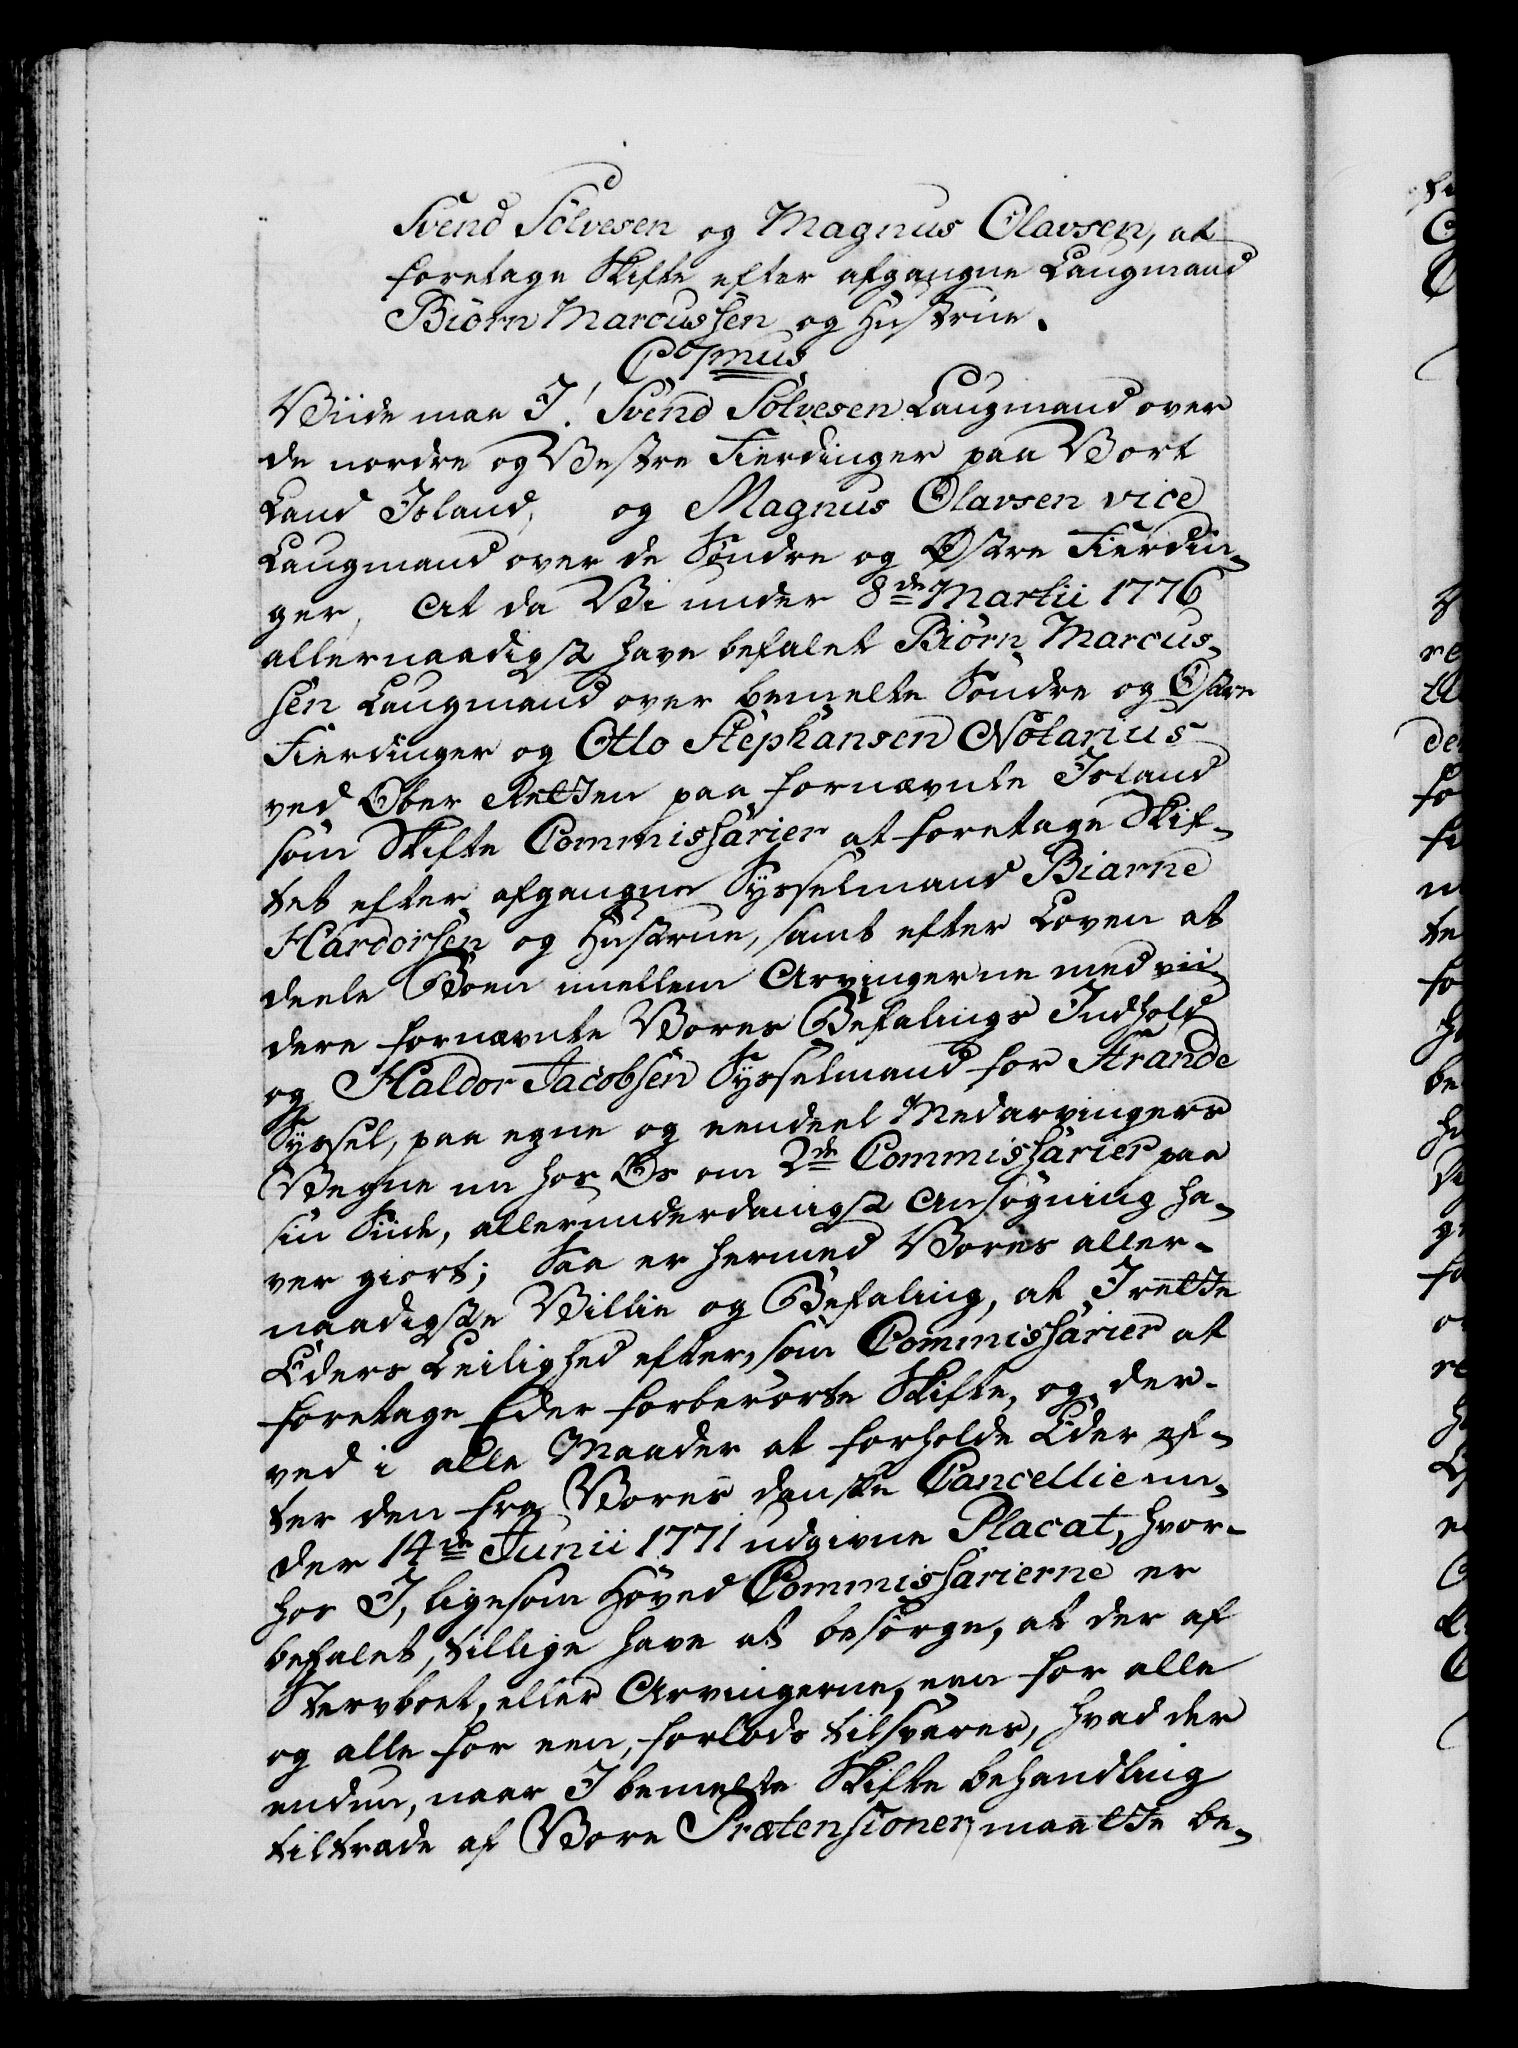 Svend Sölvesen og Magnus Olavsen, at
foretage Skifte efter afgangne Laugmand
Biörn Marcussen og Hustrue.
C7mus
Viide maa I! Svend Sölvesen Laugmand over
de nordre og Vestre Fierdinger paa Vort
Land Island, og Magnus Olavsen vice
Laugmand over de Söndre og Østre Fierdin-
ger, At da Vi under 8de Martii 1776
allernaadigst have befalet Biörn Marcus-
sen Laugmand over bemelte Söndre og Østre
Fierdinger og Otto Stephansen Notarius
ved Ober Retten paa fornævnte Island
som Skifte Commissarier at foretage Skif-
tet efter afgangne Sysselmand Biarne
Hardorsen og Hustrue, samt efter Loven at
deele Boen imellem Arvingerne med vii-
dere fornævnte Vores Befalings Indhold
og Haldor Jacobsen Sysselmand for Strande
Syssel, paa egne og eendeel Medarvingers
Vegne nu hos Os om 2de Commissarier paa
sin Side, allerunderdanigst Ansögning ha-
ver giort; Saa er hermed Vores aller-
naadigste Villie og Befaling, at I rette
Eders Leilighed efter, som Commissarier at
foretage Eder forberörte Skifte, og der-
ved i alle Maader at forholde Eder ef-
ter den fra Vores danske Cancellie un-
der 14de Junii 1771 udgivne Placat, hvor-
hos I, ligesom Höved Commissarierne er
befalet, tillige have at besörge, at der af
Stervboet, eller Arvingerne, een for alle
og alle for een, forlods tilsvares, hvad der
endnu, naar I bemelte Skifte behandling
tiltræde af Vore Prætensioner maatte be-